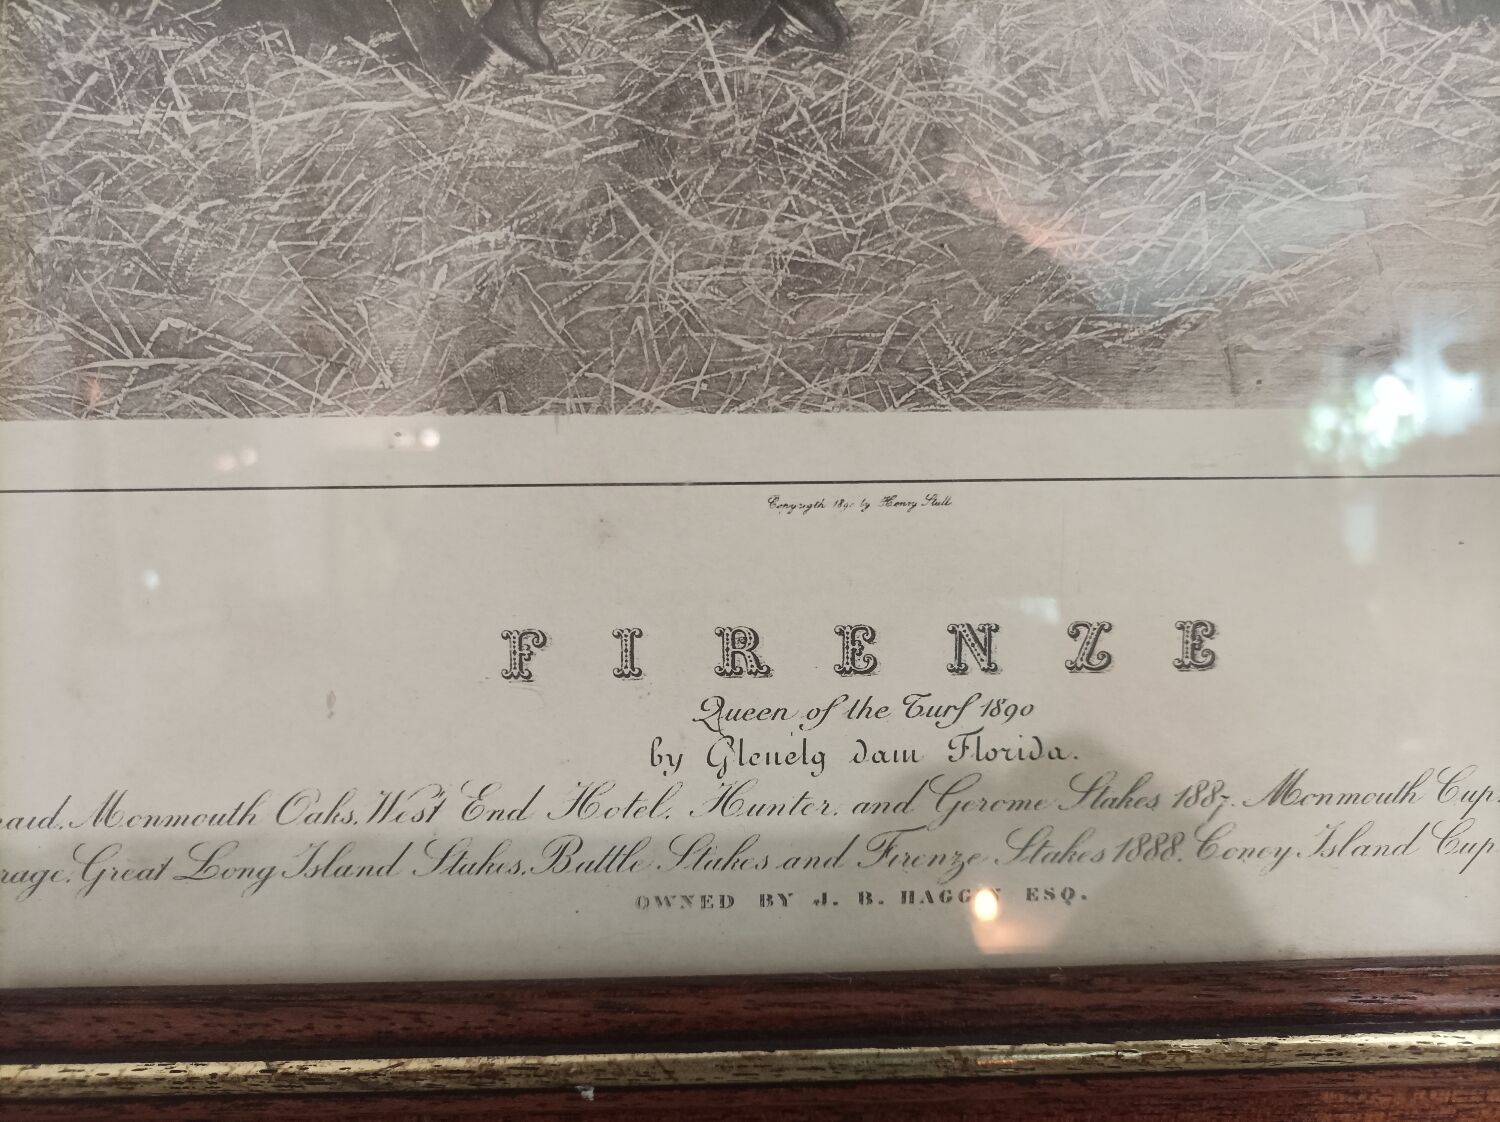 Copyrigth 1890 by Henry Stull
FIRENZE
Queen of the Turf 1890
by Glenelg dam Florida.
Monmouth Oaks, West End Hotel, Hunter, and Gerome Stakes 1887. Monmouth Cup
Great Long Island Stakes, Battle Stakes and Firenze Stakes 1888. Coney Island Cup
OWNED BY J. B. HAGGIN ESQ.